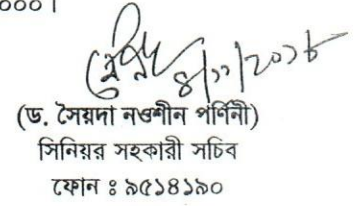 ০০০।
৪/১১/২০১৮
(ড. সৈয়দা নওশীন পর্ণিনী)
সিনিয়র সহকারী সচিব
ফোন ঃ ৯৫১৪১৯০